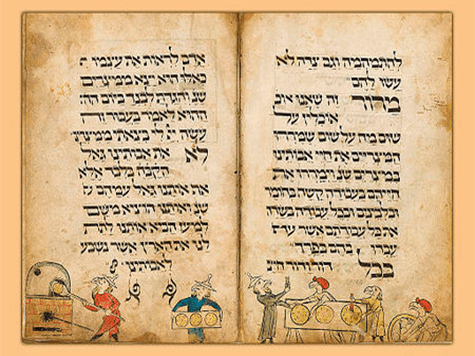 להתמהמה וגם צדה לא
עשו להם
מרור זה שאנו אוכ
אוכלין על
שום מה על שום שמררו
המצריים את חיי אבותינו
במצרים שנ׳ וימררו את
חייהם בעבודה קשה בחומר
ובלבנים ובכל עבודה בשדה
את כל עבודתם אשר
עבדו בהם בפרך
בכל דור ודור חייב
אדם לראות את עצמו
כאלו הוא יצא ממצרים
שנ׳ והגדת לבנך ביום הה
ההוא לאמר בעבור זה
עשה יי לי בצאתי ממצרים
לא את אבותינו גאל
הקבה מלבד אלא
אותנו גאל עמהם
ואותנו הוציא משם
למען הביא אותנו לתת
לנו את הארץ אשר נשבע
לאבותינו